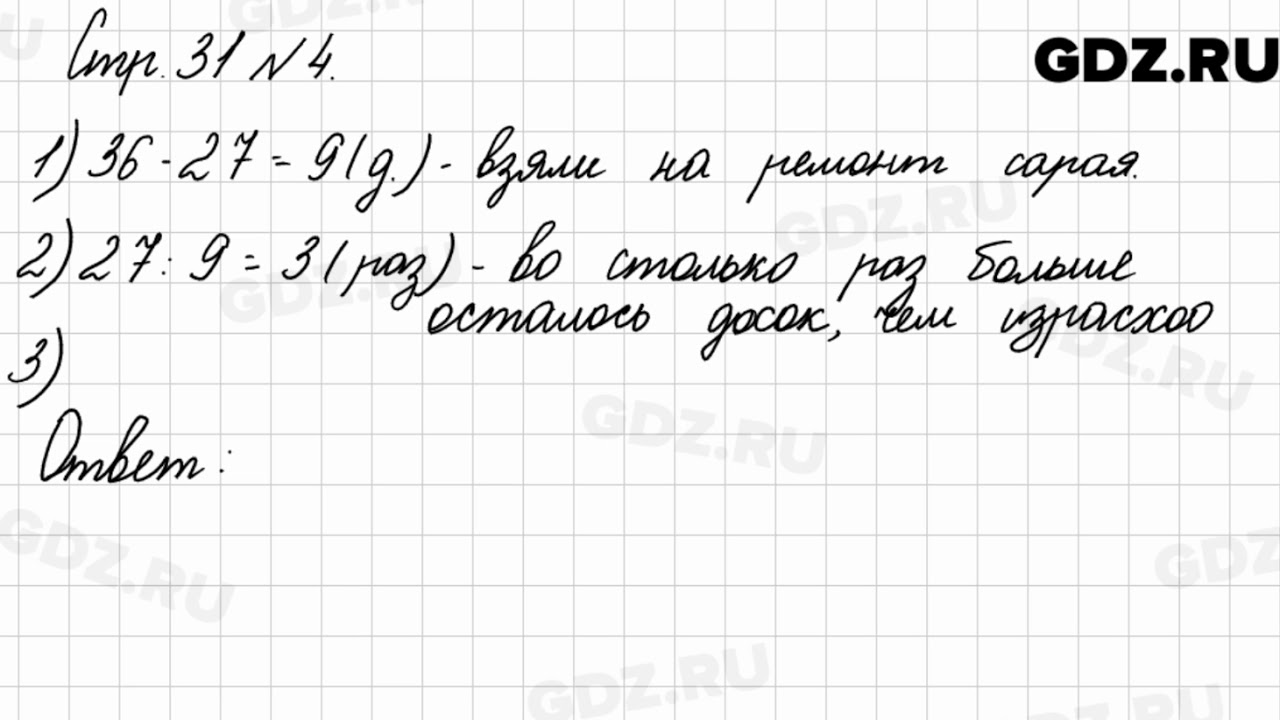 Стр. 31 № 4.
GDZ.RU
1) 36 - 27 = 9 (д.) - взяли на ремонт сарая.
2) 27 : 9 = 3 (раз) - во столько раз больше
осталось досок, чем израсход
3)
Ответ: